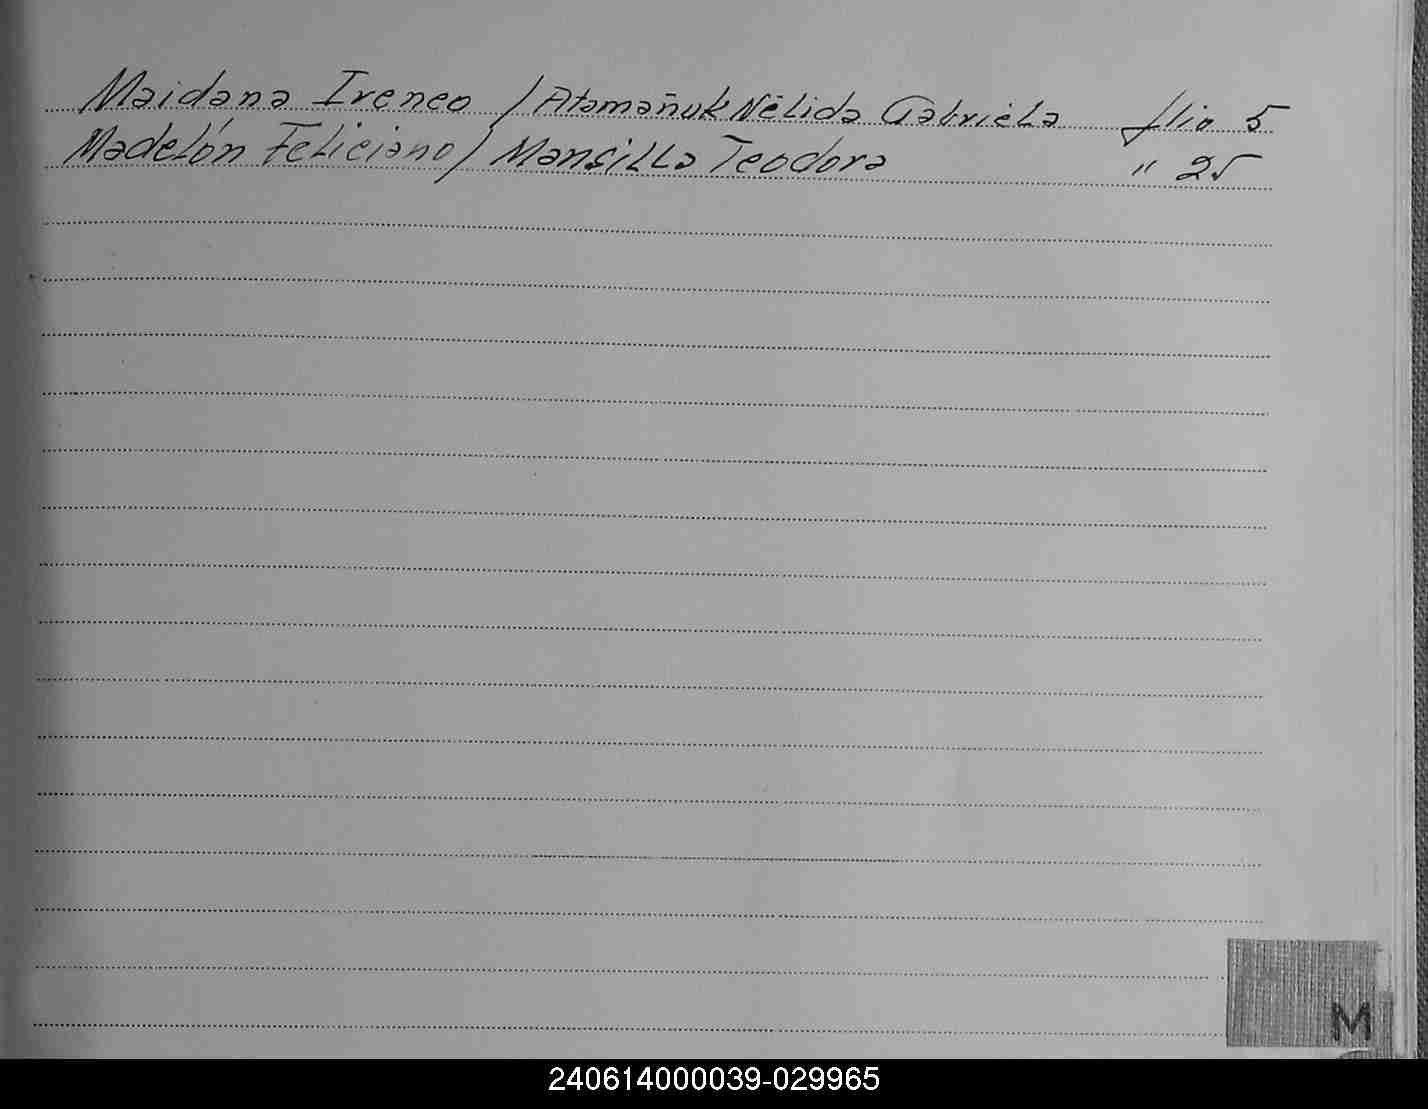 Maidana Ireneo / Atamañuk Nélida Gabriela flio 5
Madelón Feliciano / Mansilla Teodora " 25
M
240614000039-029965